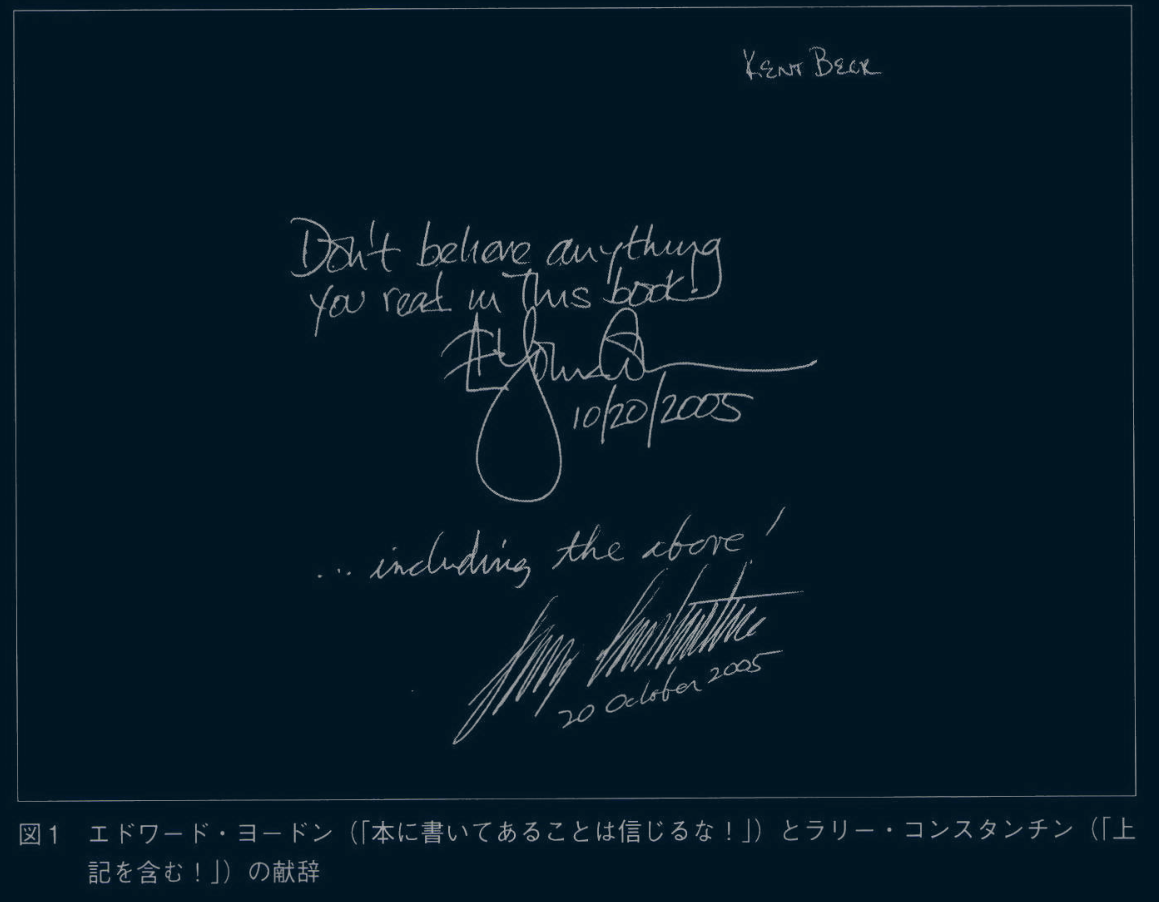 KENT BECK
Don't believe anything
you read in this book!
Ed Yourdon
10/20/2005
... including the above!
Larry Constantine
20 October 2005
図1 エドワード・ヨードン(「本に書いてあることは信じるな!」)とラリー・コンスタンチン(「上
記を含む!」)の献辞